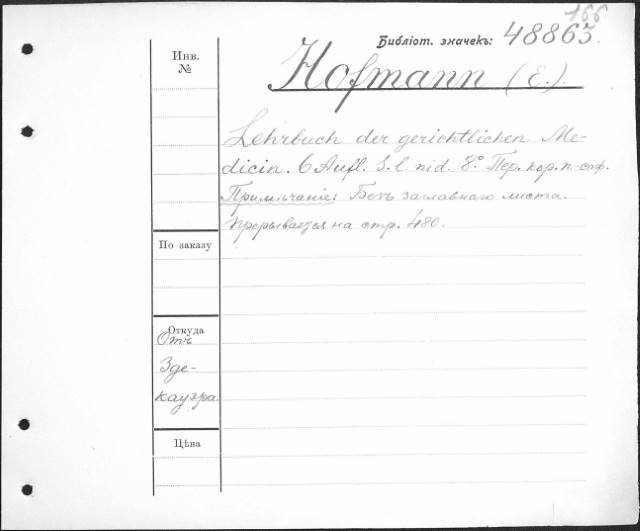 166
Библiот. значекъ: 48863.
Инв.
№
Hofmann (E.)
Lehrbuch der gerichtlichen Me-
dicin. 6 Aufl. S. l. nid. 8° Пер. кор. п.
Примѣчанiе: Безъ заглавнаго листа.
Прерывается на стр. 480.
По заказу
Откуда
Отъ
Зде-
кауэра
Цѣна